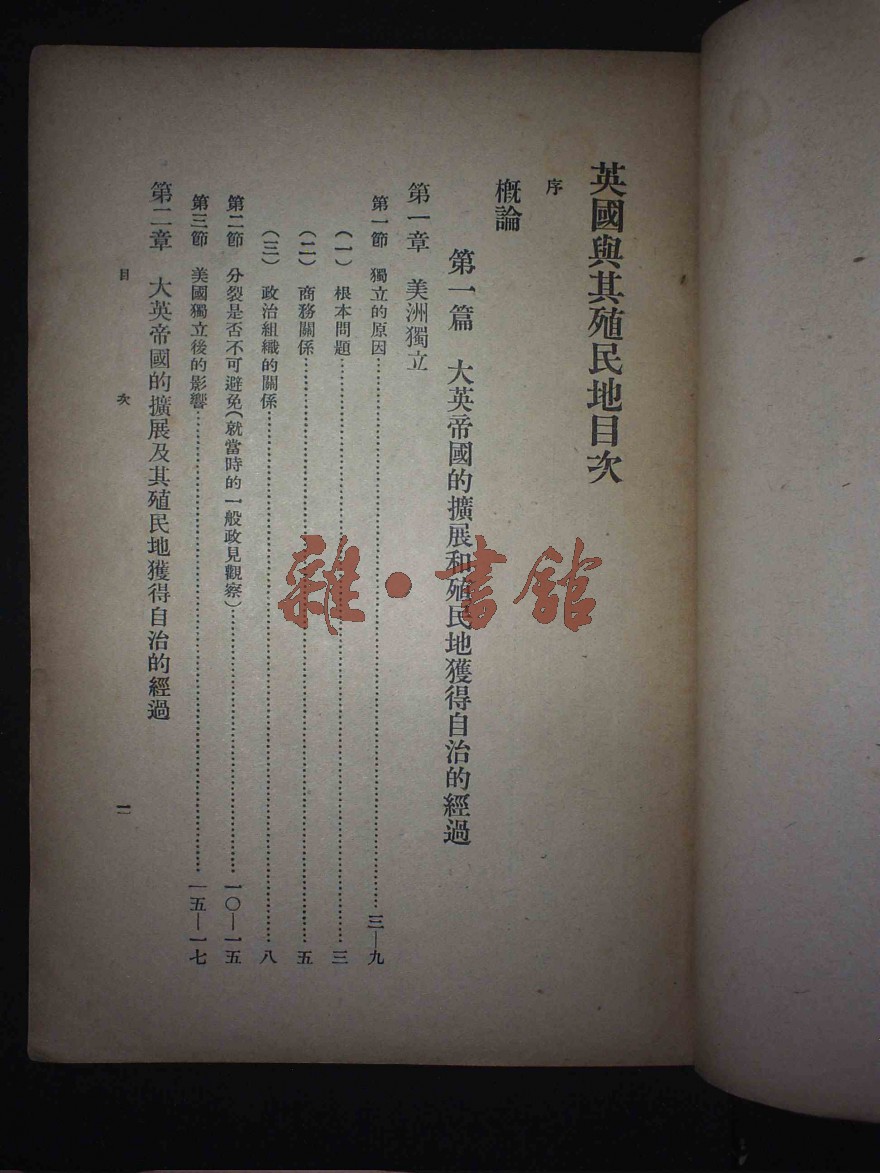 英國與其殖民地目次
序
概論
第一篇　大英帝國的擴展和殖民地獲得自治的經過
第一章　美洲獨立
第一節　獨立的原因………三—九
（一）　根本問題………三
（二）　商務關係………五
（三）　政治組織的關係………八
第二節　分裂是否不可避免（就當時的一般政見觀察）………一〇—一五
第三節　美國獨立後的影響………一五—一七
第二章　大英帝國的擴展及其殖民地獲得自治的經過
目次　一
雜·書館